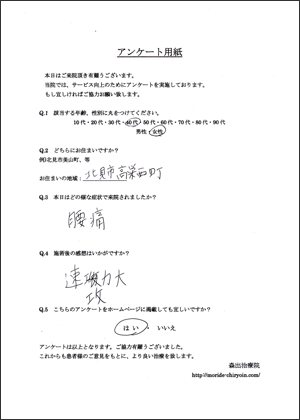 アンケート用紙
本日はご来院頂き有難うございます。
当院では、サービス向上のためにアンケートを実施しております。
もし宜しければご協力お願い致します。
Q.1 該当する年齢、性別に丸をつけてください。
10代・20代・30代・40代・50代・60代・70代・80代・90代
男性・女性
Q.2 どちらにお住まいですか?
例)北見市美山町、等
お住まいの地域: 北見市高栄西町
Q.3 本日はどの様な症状で来院されましたか?
腰痛
Q.4 施術後の感想はいかがですか?
速 力大
Q.5 こちらのアンケートをホームページに掲載しても宜しいですか?
はい・いいえ
アンケートは以上となります。ご協力有難うございました。
これからも患者様のご意見をもとに、より良い治療を致します。
森出治療院
http://moride-chiryoin.com/